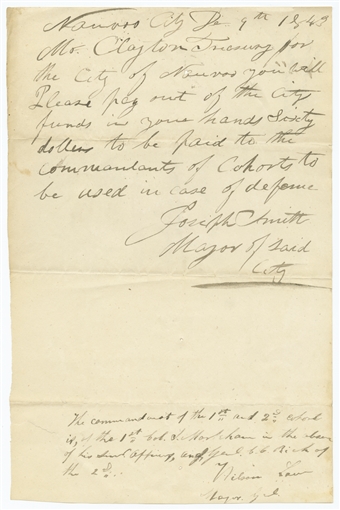 Nauvoo City 9th 1843
Mr. Clayton Treasury for
the City of Nauvoo you will
Please pay out of the City
funds in your hands Sixty
dollars to be paid to the
commandants of Cohorts to
be used in case of defence
Joseph Smith
Mayor of said
City
The commandant of the 1st and 2d cohort
is, of the 1st Col. S. Markham in the absence
of his and Genl. C C Rich of
the 2d.
Wilson Law
Major Genl